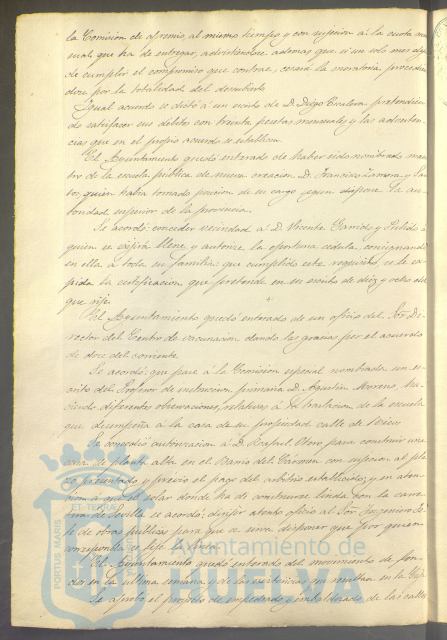 la Comision de apremio, al mismo tiempo y con sujecion á la cuota men
sual que ha de entregar, advirtiéndose ademas que si un solo mes deja
de cumplir el compromiso que contrae, cesará la moratoria, procedien
dose por la totalidad del descubierto.
Igual acuerdo se dictó á un escrito de D. Diego pretendien
do satisfacer sus débitos con treinta pesetas mensuales y las adverten
cias que en el propio acuerdo se establecen.
El Ayuntamiento quedó enterado de haber sido nombrado maes
tro de la escuela pública de nueva creacion D. Francisco Zamora y San
tos, quien habia tomado posesion de su cargo segun dispone la au
toridad superior de la provincia.
Se acordó: conceder vecindad á D. Vicente Garrido y Pulido á
quien se exijirá llene y autorice la oportuna cédula, consignando
en ella á toda su familia: que cumplido este requisito, se le es
pida la certificacion que pretende en su escrito de diez y ocho del
que rije.
El Ayuntamiento quedó enterado de un oficio del Sor. Di
rector del Centro de vacunacion dando las gracias por el acuerdo
de doce del corriente.
Se acordó: que pase á la Comision especial nombrada un es
crito del Profesor de instruccion primaria D. Agustin Moreno, ha
ciendo diferentes observaciones, relativas á la traslacion de la escuela
que desempeña á la casa de su propiedad calle de
Se concedió autorizacion á D. Rafael Otero para construir una
casa de planta alta en el Barrio del Cármen con sujecion al pla
no presentado y previo el pago del arbitrio establecido; y en aten
cion á que el solar donde ha de construirse linda con la carre
tera de Sevilla se acordó: dirijir atento oficio al Sor. Ingeniero Je
fe de obras públicas para que se sirva disponer que por quien
corresponda se fije la linea.
El Ayuntamiento quedó enterado del movimiento de fon
dos en la última semana y de las existencias que resultan en la Caja.
Se aprobó el proyecto de empedrado y embaldosado de las calles
PORTUS MARIS ET TERRAE
Ayuntamiento de
HUELVA